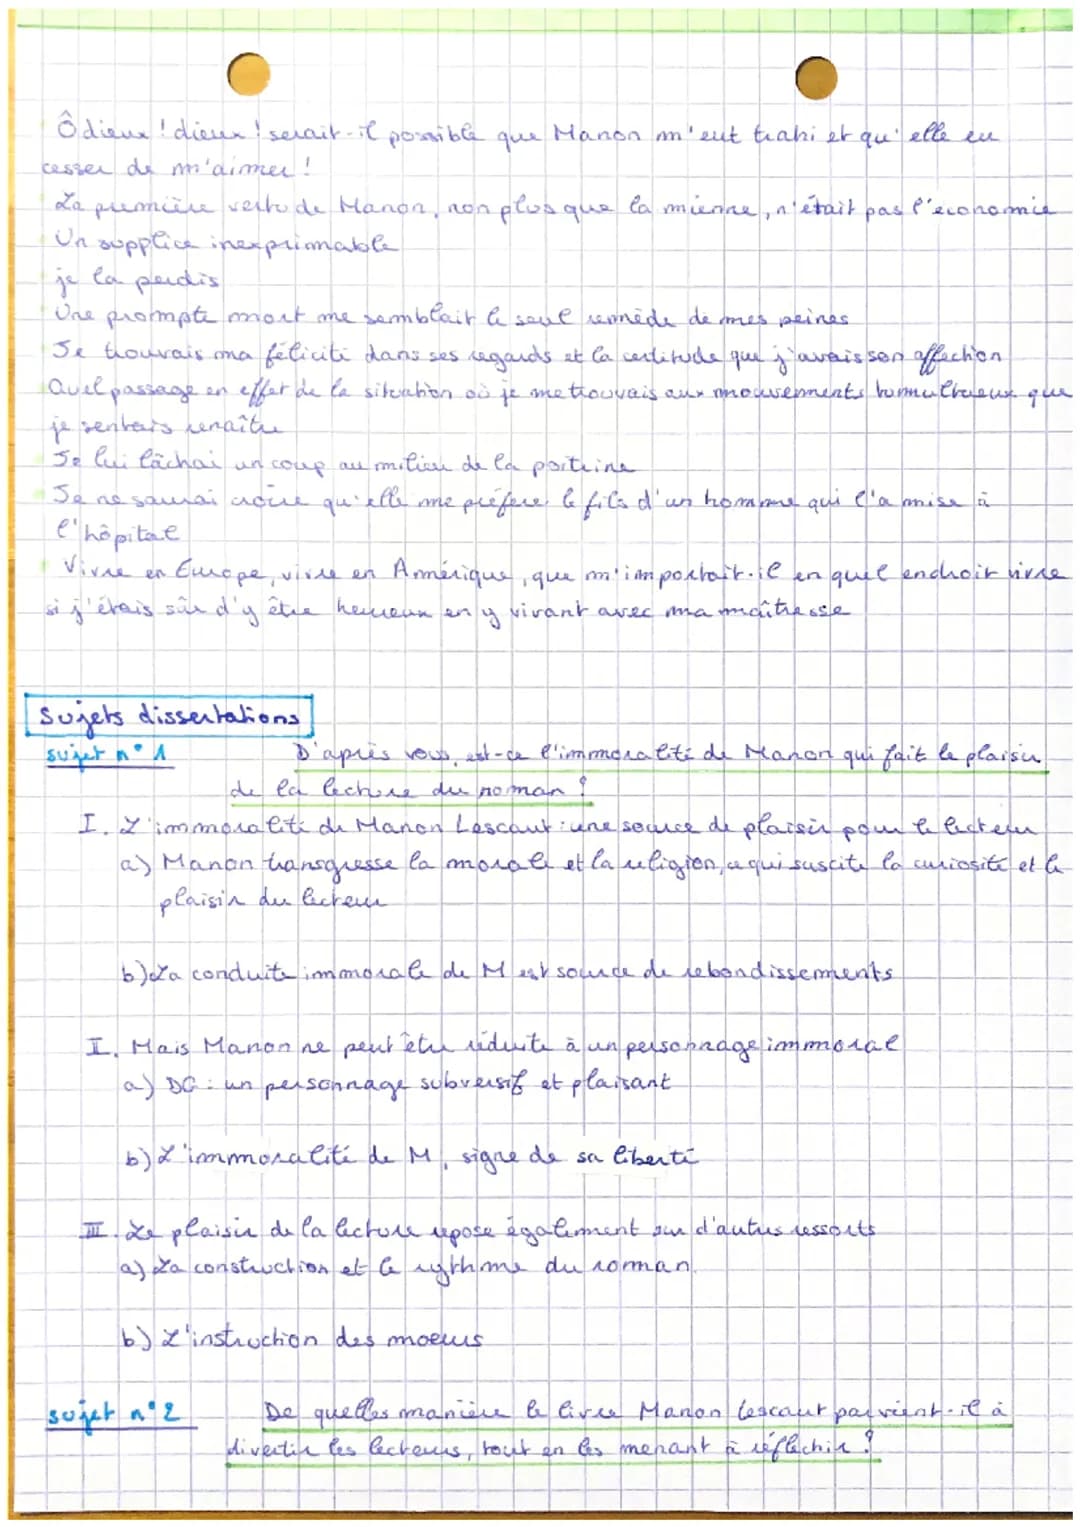 Ô dieux ! dieux ! serait-il possible que Manon m'eut trahi et qu'elle eu
cesser de m'aimer !
La première vertu de Manon, non plus que la mienne, n'était pas l'économie
Un supplice inexprimable
je la perdis
Une prompte mort me semblait le seul remède de mes peines
Je trouvais ma félicité dans ses regards et la certitude que j'avais son affection
Quel passage en effet de la situation où je me trouvais aux mouvements tumultueux que
je sentais renaître
Je lui lâchai un coup au milieu de la poitrine
Je ne saurai croire qu'elle me préfère le fils d'un homme qui l'a mise à
l'hôpital
Vivre en Europe, vivre en Amérique, que m'importait-il en quel endroit vivre
si j'étais sûr d'y être heureux en y vivant avec ma maîtresse
Sujets dissertations
sujet n° 1 D'après vous, est-ce l'immoralité de Manon qui fait le plaisir
de la lecture du roman ?
I. L'immoralité de Manon Lescaut : une source de plaisir pour le lecteur
a) Manon transgresse la morale et la religion, ce qui suscite la curiosité et le
plaisir du lecteur
b) La conduite immorale de M est source de rebondissements
II. Mais Manon ne peut être réduite à un personnage immoral
a) DG : un personnage subversif et plaisant
b) L'immoralité de M, signe de sa liberté
III. Le plaisir de la lecture repose également sur d'autres ressorts
a) La construction et le rythme du roman
b) L'instruction des moeurs
sujet n° 2 De quelles manière le livre Manon Lescaut parvient-il à
divertir les lecteurs, tout en les menant à réfléchir ?